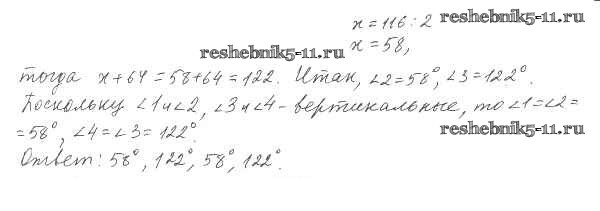 x = 116 : 2
reshebnik5-11.ru
reshebnik5-11.ru
x = 58,
тогда x + 64 = 58 + 64 = 122. Итак, ∠2 = 58°, ∠3 = 122°.
Поскольку ∠1 и ∠2, ∠3 и ∠4 - вертикальные, то ∠1 = ∠2 =
= 58°, ∠4 = ∠3 = 122°.
reshebnik5-11.ru
Ответ: 58°, 122°, 58°, 122°.